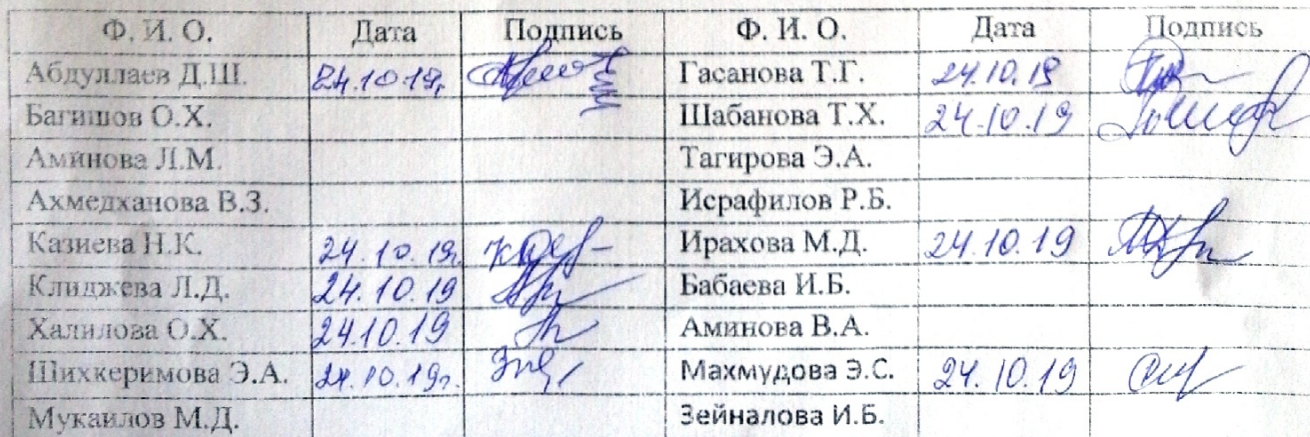 Ф. И. О. Дата Подпись Ф. И. О. Дата Подпись
Абдуллаев Д.Ш. 24.10.19г. Гасанова Т.Г. 24.10.19
Багишов О.Х. Шабанова Т.Х. 24.10.19
Аминова Л.М. Тагирова Э.А.
Ахмедханова В.З. Исрафилов Р.Б.
Казиева Н.К. 24.10.19г. Ирахова М.Д. 24.10.19
Клиджева Л.Д. 24.10.19 Бабаева И.Б.
Халилова О.Х. 24.10.19 Аминова В.А.
Шихкеримова Э.А. 24.10.19г. Махмудова Э.С. 24.10.19
Мукаилов М.Д. Зейналова И.Б.